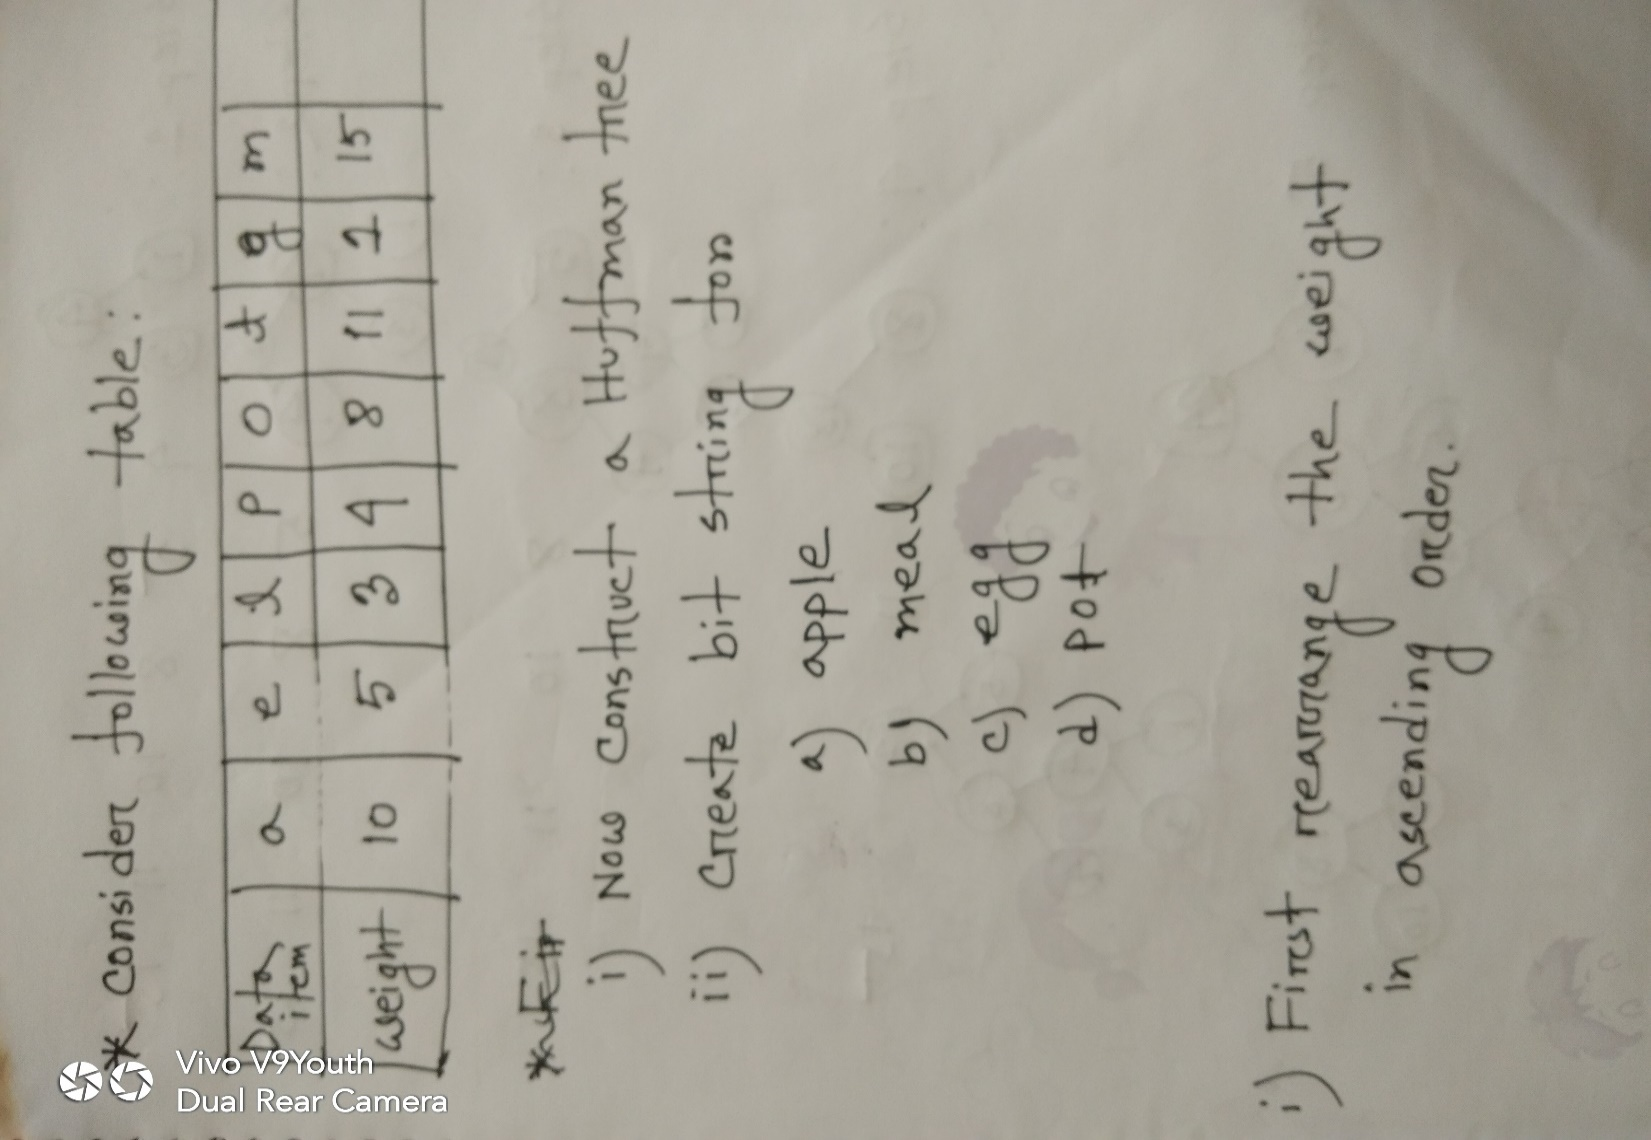 * consider following table:
Data item a e l p o t g m
weight 10 5 3 4 8 11 2 15
i) Now construct a Huffman tree
ii) Create bit string for
a) apple
b) meal
c) egg
d) pot
i) First rearrange the weight
in ascending order.
Vivo V9Youth
Dual Rear Camera